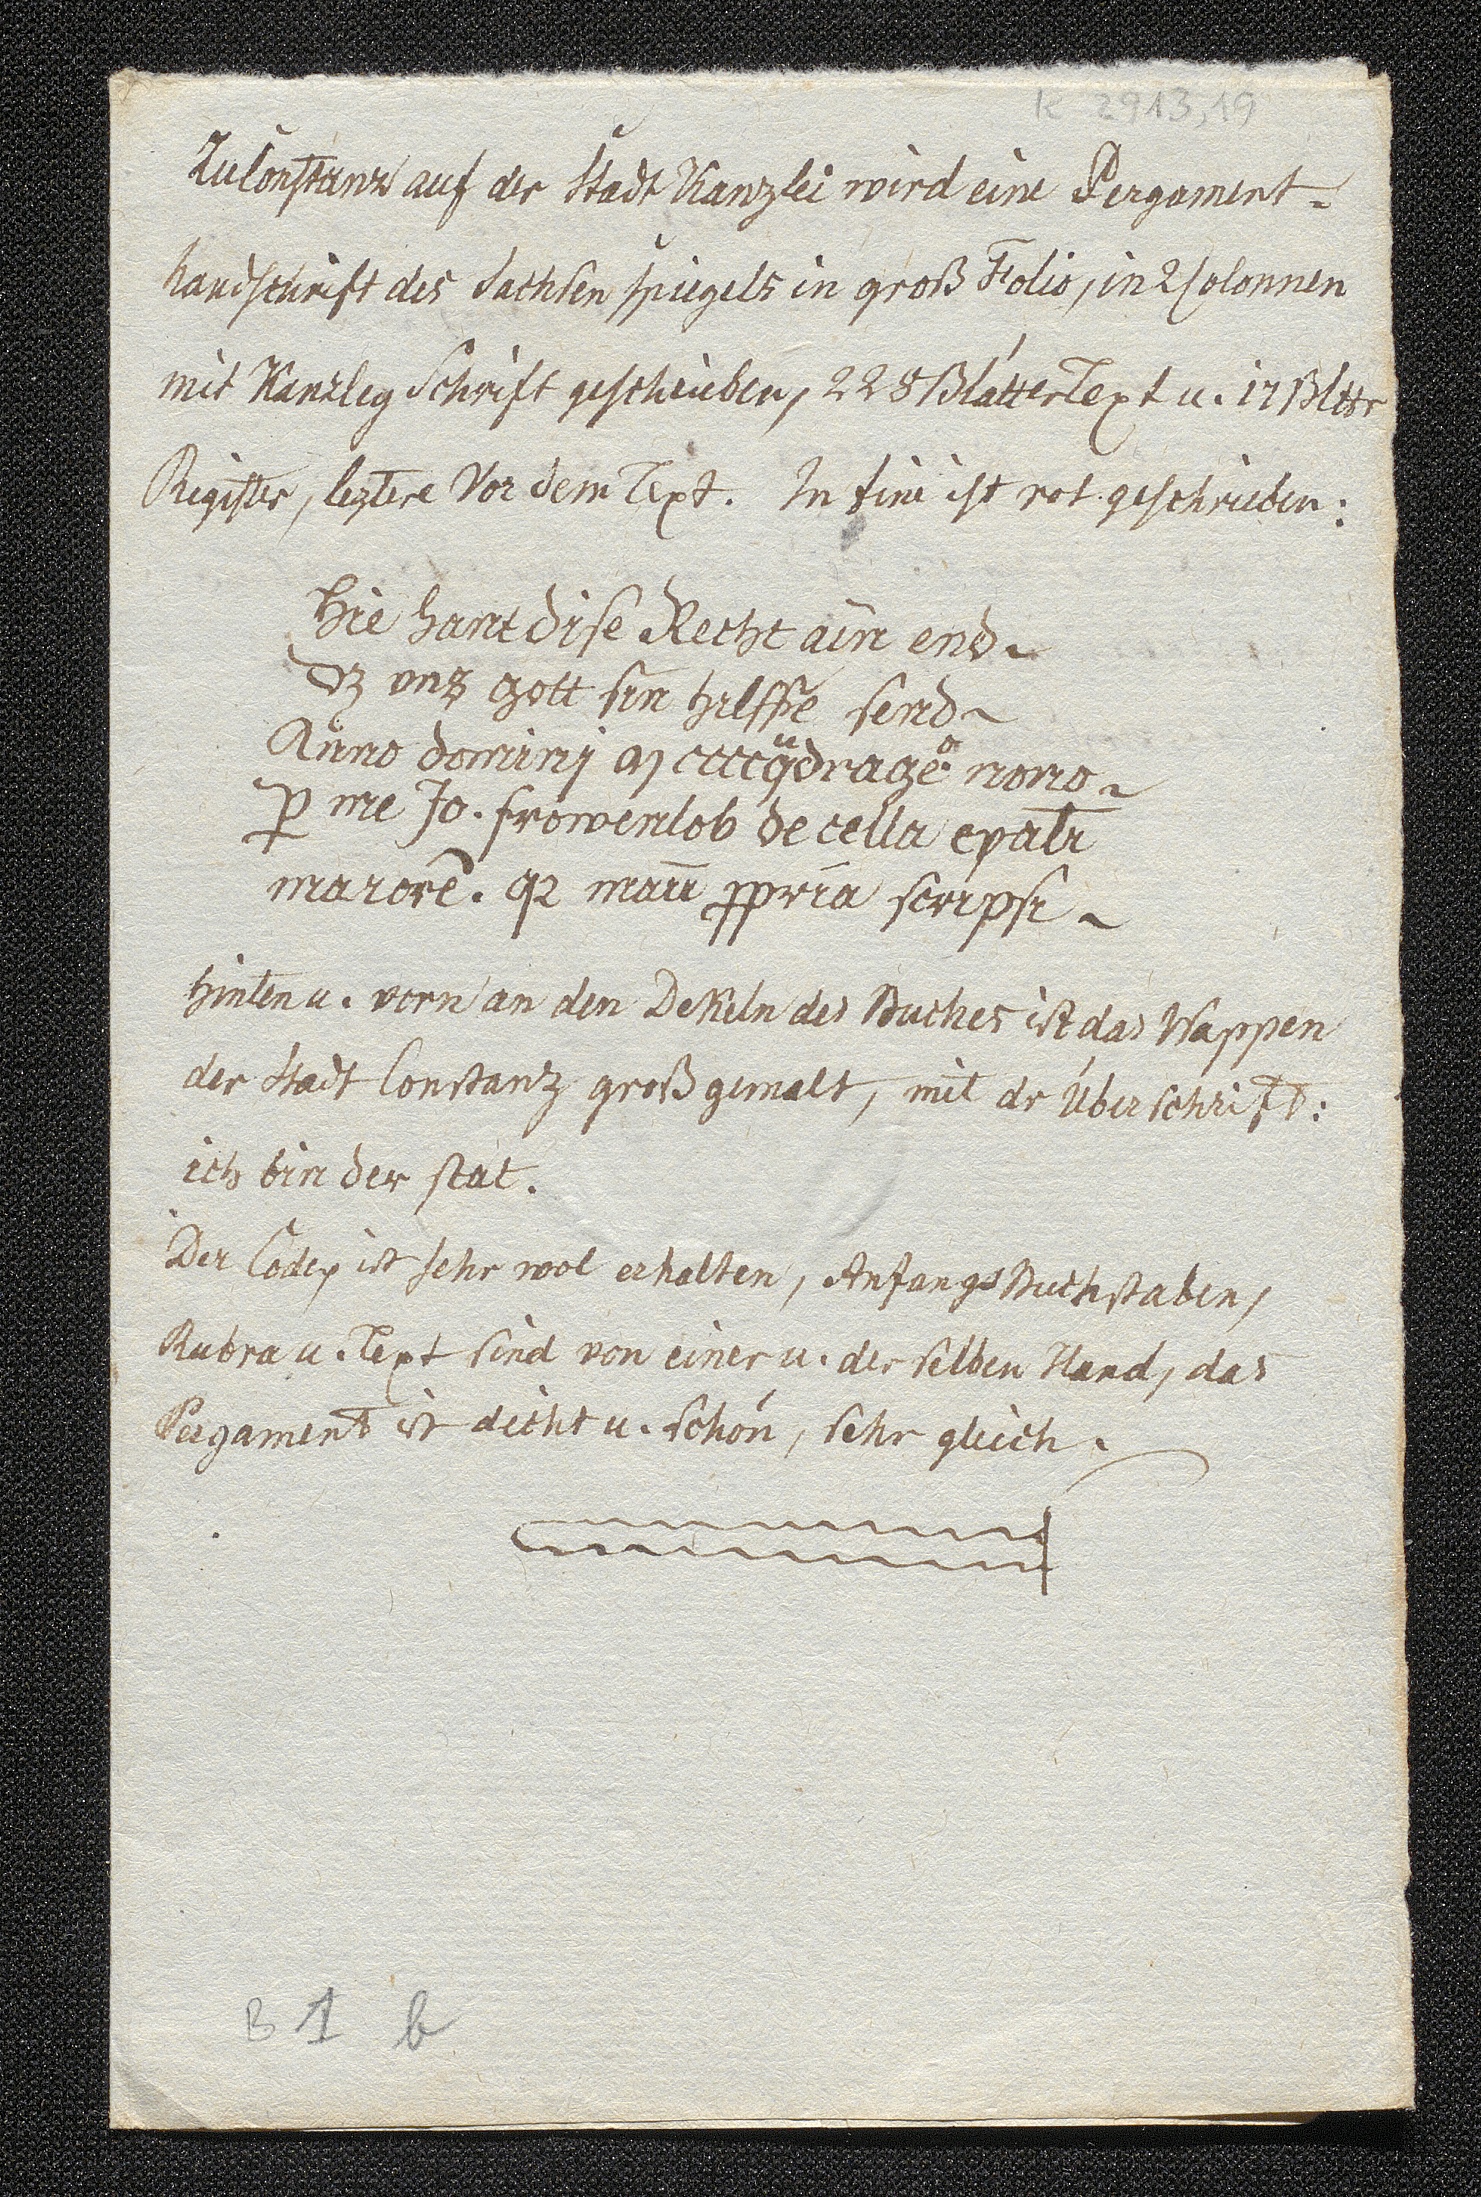 K 2913,19
Zu Constanz auf der Stadt Kanzlei wird eine Pergament-
handschrift des Sachsenspiegels in groß Folio, in 2 Colonnen
mit Kanzley Schrift geschrieben, 228 Blätter Text u. 17 Blttr
Register, leztere vor dem Text. In fine ist rot geschrieben:
Hie hant dise Recht ain end~
Dz vnß gott sin hilffe send~
Anno dominj M cccc qͧdrageͦ nono~
ꝑ me Jo. frowenlob de cella epali
maiore. qz manu ꝓpria scripsi~
Hinten u. vorn an den Dekeln des Buches ist das Wappen
der Stadt Constanz groß gemalt, mit dr Überschrift:
ich bin der stat.
Der Codex ist sehr wol erhalten, Anfangs Buchstaben,
Rubra u. Text sind von einer u. derselben Hand, das
Pergament ist dicht u. schön, sehr gleich.
B 1 b